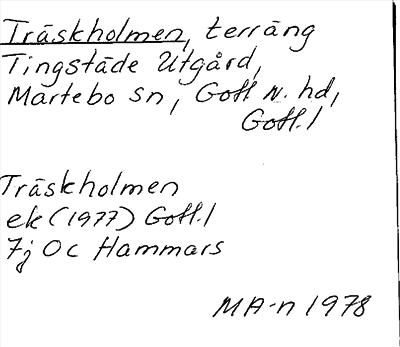 Träskholmen, terräng
Tingstäde Utgård,
Martebo sn, Gotl n. hd,
Gotl. l
Träskholmen
ek (1977) Gotl. l
7j Oc Hammars
MA-n 1978